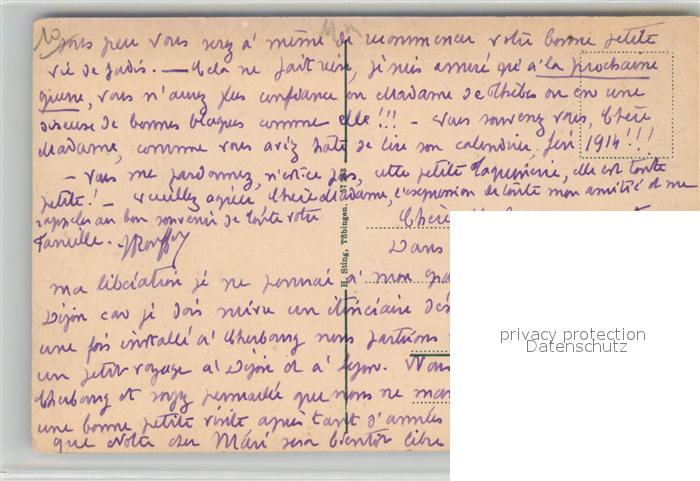 sous peu vous serez à même de recommencer votre bonne petite
vie de jadis. — Cela ne fait rien, je suis assuré qu'à la prochaine
guerre, vous n'aurez plus confiance en Madame de Thèbes ou en une
diseuse de bonnes blagues comme elle !!! — Vous souvenez vous, Chère
Madame, comme vous aviez hâte de lire son calendrier 1914 !!!
— Vous me pardonnez, n'est-ce pas, cette petite taquinerie, elle est toute
petite! — Veuillez agréer Chère Madame, l'expression de toute mon amitié et me
rappeler au bon souvenir de toute votre
famille.
Chère
Dans
ma libération je ne pourrai à mon
Dijon car je dois suivre un itinéraire
une fois installé à Cherbourg nous partirons
un petit voyage à Dijon et à Lyon. Vous
Cherbourg et soyez persuadée que nous ne
une bonne petite visite après tant d'années
que votre cher Mari sera bientôt libre
H. Sting, Tübingen.
privacy protection
Datenschutz